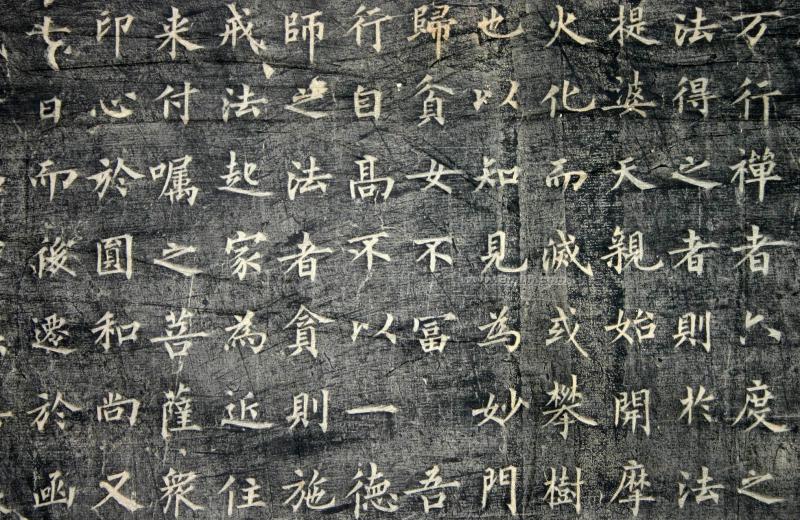 万行禪者六度之
法得之者則於法
提婆天親始開摩
火化而滅或攀樹
也以知見為妙門
歸貧女不冨吾
行自髙不以一德
師之法者貪則施
戒法起家為近住
来付嘱之菩薩衆
印心於圓和尚又
七日而後遷於函